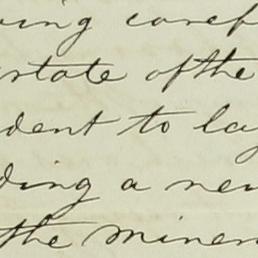 ing caref
state of the
dent to lay
ding a new
the miner